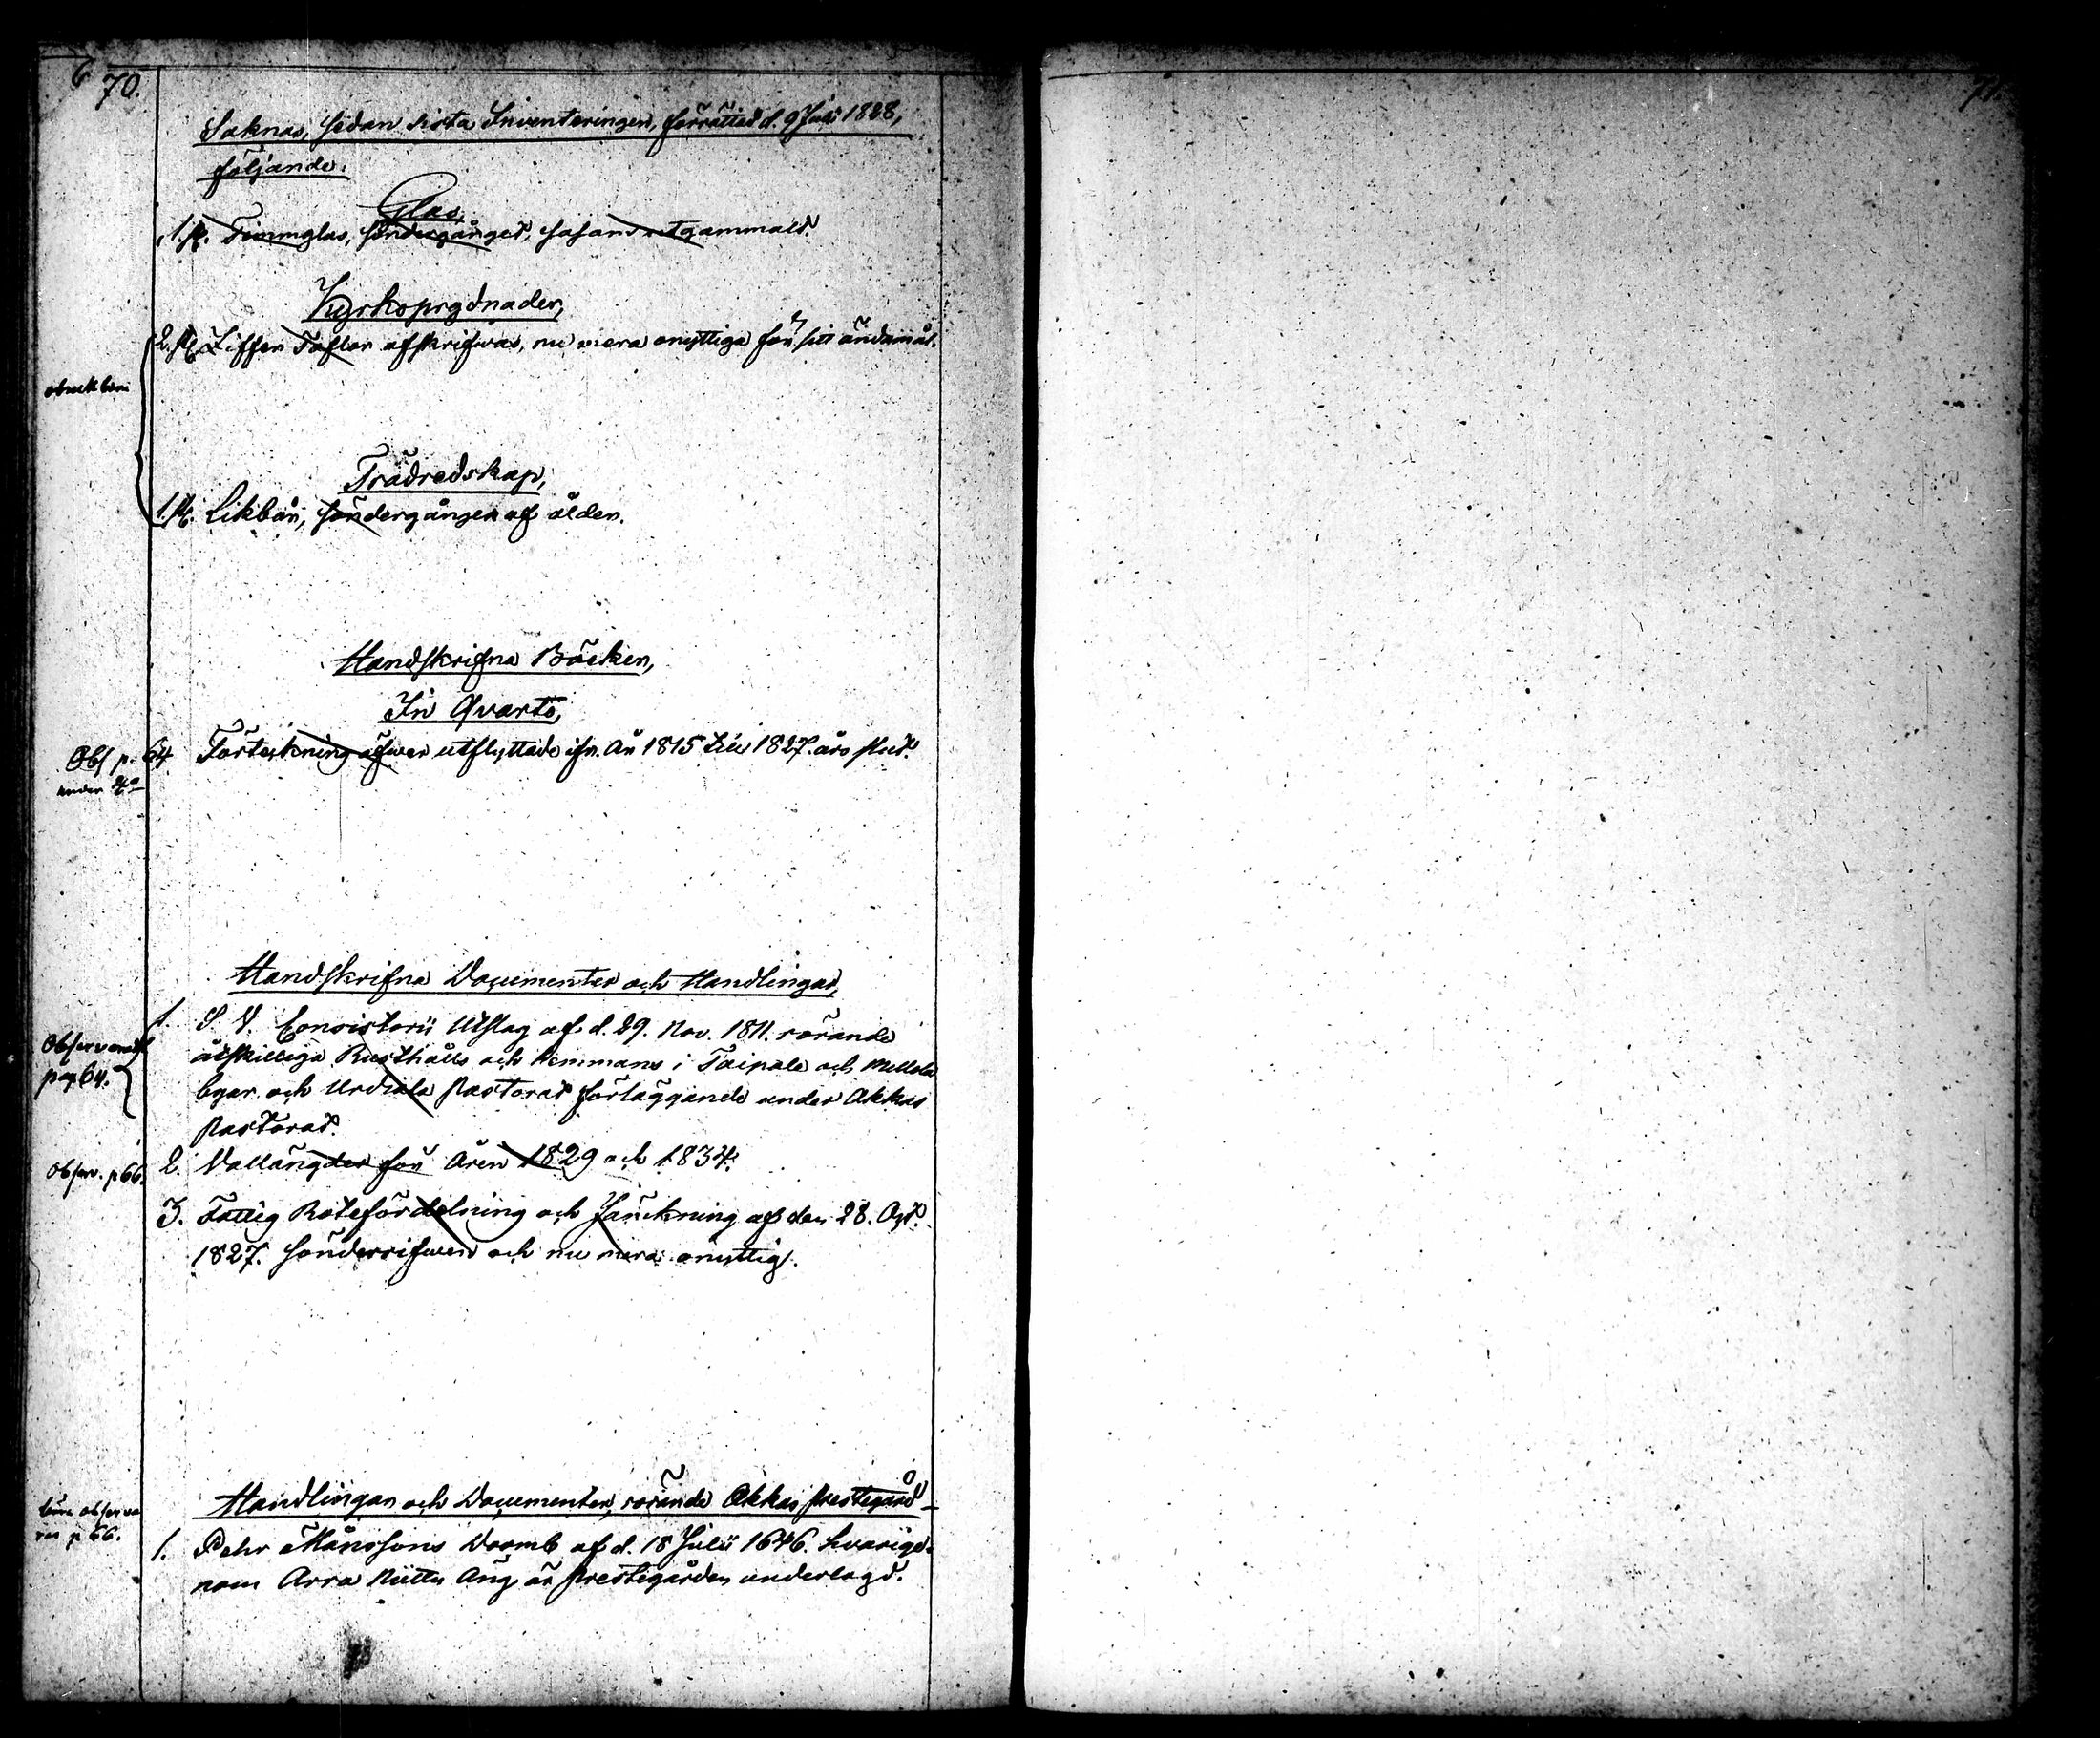 70.
71.
Saknas, sedan sista Inventeringen, förrättad d. 9 Juli 1828,
följande:
Glas,
1. st. Timmglas, söndergånget, såsom utgammalt.
Kyrkoprydnader,
2. st. Ziffer Taflor afskrifvas, nu mera onyttiga för sitt ändamål.
Trädredskap,
1. st. Likbår, söndergången af ålder.
Handskrifna Böcker,
In Quarto,
Obs p. 64 Förteckning öfwer utflyttade ifr. År 1815 till 1827 års slut.
under 4to
Handskrifna Documenter och Handlingar,
1. S. V. Consistorii Utslag af d. 29. Nov. 1811. rörande
åtskilliga Rusthålls och Hemmans i Taipale och Mellola
byar och Urdiala Pastorat förläggande under Akkas
Pastorat.
pag 64.
Observ. p 66. 2. Vallängder för Åren 1829 och 1834.
3. Fattig Rotefördelning och af den 28. Oct.
1827. sönderrifwen och nu mera onyttig.
Handlingar och Documenter, rörande Akkas Prestegård
böra observe
ras p 66.
1. Pehr Månssons Doomb af d. 18 Julii 1646. hvarige-
nom Arra Niittu Äng är Prestegården underlagd.